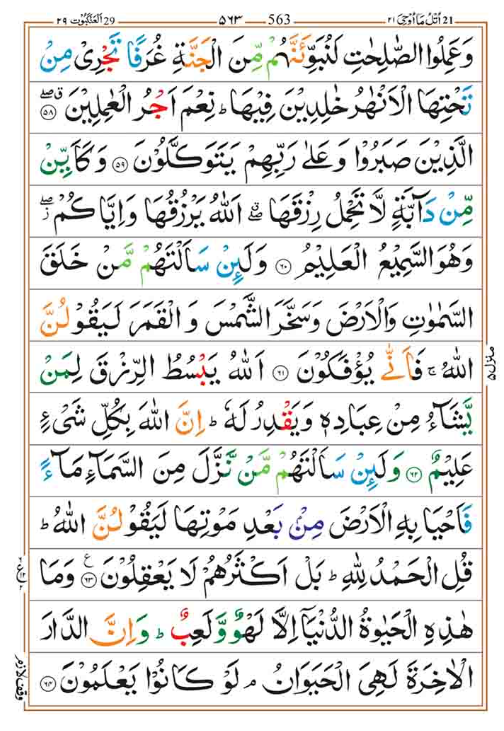 اُتْلُ مَآ اُوْحِیَ ۲۱ 21 563 ۵۶۳ 29 اَلْعَنْكَبُوْت ۲۹
وَعَمِلُوا الصّٰلِحٰتِ لَنُبَوِّئَنَّهُمْ مِّنَ الْجَنَّةِ غُرَفًا تَجْرِیْ مِنْ
تَحْتِهَا الْاَنْهٰرُ خٰلِدِیْنَ فِیْهَا ؕ نِعْمَ اَجْرُ الْعٰمِلِیْنَ ۵۸
الَّذِیْنَ صَبَرُوْا وَعَلٰی رَبِّهِمْ یَتَوَكَّلُوْنَ ۵۹ وَكَاَیِّنْ
مِّنْ دَآبَّةٍ لَّا تَحْمِلُ رِزْقَهَا اَللّٰهُ یَرْزُقُهَا وَاِیَّاكُمْ
وَهُوَ السَّمِیْعُ الْعَلِیْمُ ۶۰ وَلَىِٕنْ سَاَلْتَهُمْ مَّنْ خَلَقَ
السَّمٰوٰتِ وَالْاَرْضَ وَسَخَّرَ الشَّمْسَ وَالْقَمَرَ لَیَقُوْلُنَّ
اللّٰهُ ۚ فَاَنّٰی یُؤْفَكُوْنَ ۶۱ اَللّٰهُ یَبْسُطُ الرِّزْقَ لِمَنْ
یَّشَآءُ مِنْ عِبَادِهٖ وَیَقْدِرُ لَهٗ ؕ اِنَّ اللّٰهَ بِكُلِّ شَیْءٍ
عَلِیْمٌ ۶۲ وَلَىِٕنْ سَاَلْتَهُمْ مَّنْ نَّزَّلَ مِنَ السَّمَآءِ مَآءً
فَاَحْیَا بِهِ الْاَرْضَ مِنْۢ بَعْدِ مَوْتِهَا لَیَقُوْلُنَّ اللّٰهُ ؕ
قُلِ الْحَمْدُ لِلّٰهِ ؕ بَلْ اَكْثَرُهُمْ لَا یَعْقِلُوْنَ ۶۳ وَمَا
هٰذِهِ الْحَیٰوةُ الدُّنْیَآ اِلَّا لَهْوٌ وَّلَعِبٌ ؕ وَاِنَّ الدَّارَ
الْاٰخِرَةَ لَهِیَ الْحَیَوَانُ ۘ لَوْ كَانُوْا یَعْلَمُوْنَ ۶۴
منزل ۵
وقف لازم